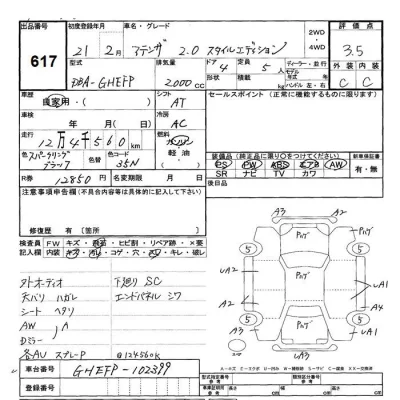 出品番号 617
初度登録年月 21年 2月
車名・グレード アテンザ 2.0 スタイルエディション
2WD
・
4WD
評価点
3.5
外装 内装
C C
型式 DBA-GHEFP
排気量 2000 cc
ドア 4
定員 5人
形状
積載 kg
ディーラー・並行
モデル年式
ハンドル 左・右
車歴 自家用・( )
シフト AT
車検 年 月( 日)
冷房 AC
走行 12万4千560km
燃料 ガソリン
軽油・
色 スパークリングブラック
色替
色コード 35N
R券 12850円
名変期限 月 日
セールスポイント (正常に機能するものに限ります)
装備品 (純正品に限り○をつけてください)
PS PW ABS エアB AW
SR ナビ TV カワ
新車保証書
有・無
後日品
注意事項申告欄(不具合内容等は具体的に記入して下さい)
修復歴 有( )箇所
検査員記入欄
FW キズ・飛石・ヒビ割・リペア跡・×要
内装 キズ・汚レ・コゲ・穴・ベタ・キレ・破レ
オトオーディオ 下廻り SC
天バリ ハガレ エンドパネル シワ
シート ヘタリ
AW
Dミラー
各AU スプレーP @124560K
車台番号 GHEFP-102399
登録番号
A3 A2
Pいげ
5 5
UA2 UA1
A2 A4
UA1
5 5
A3